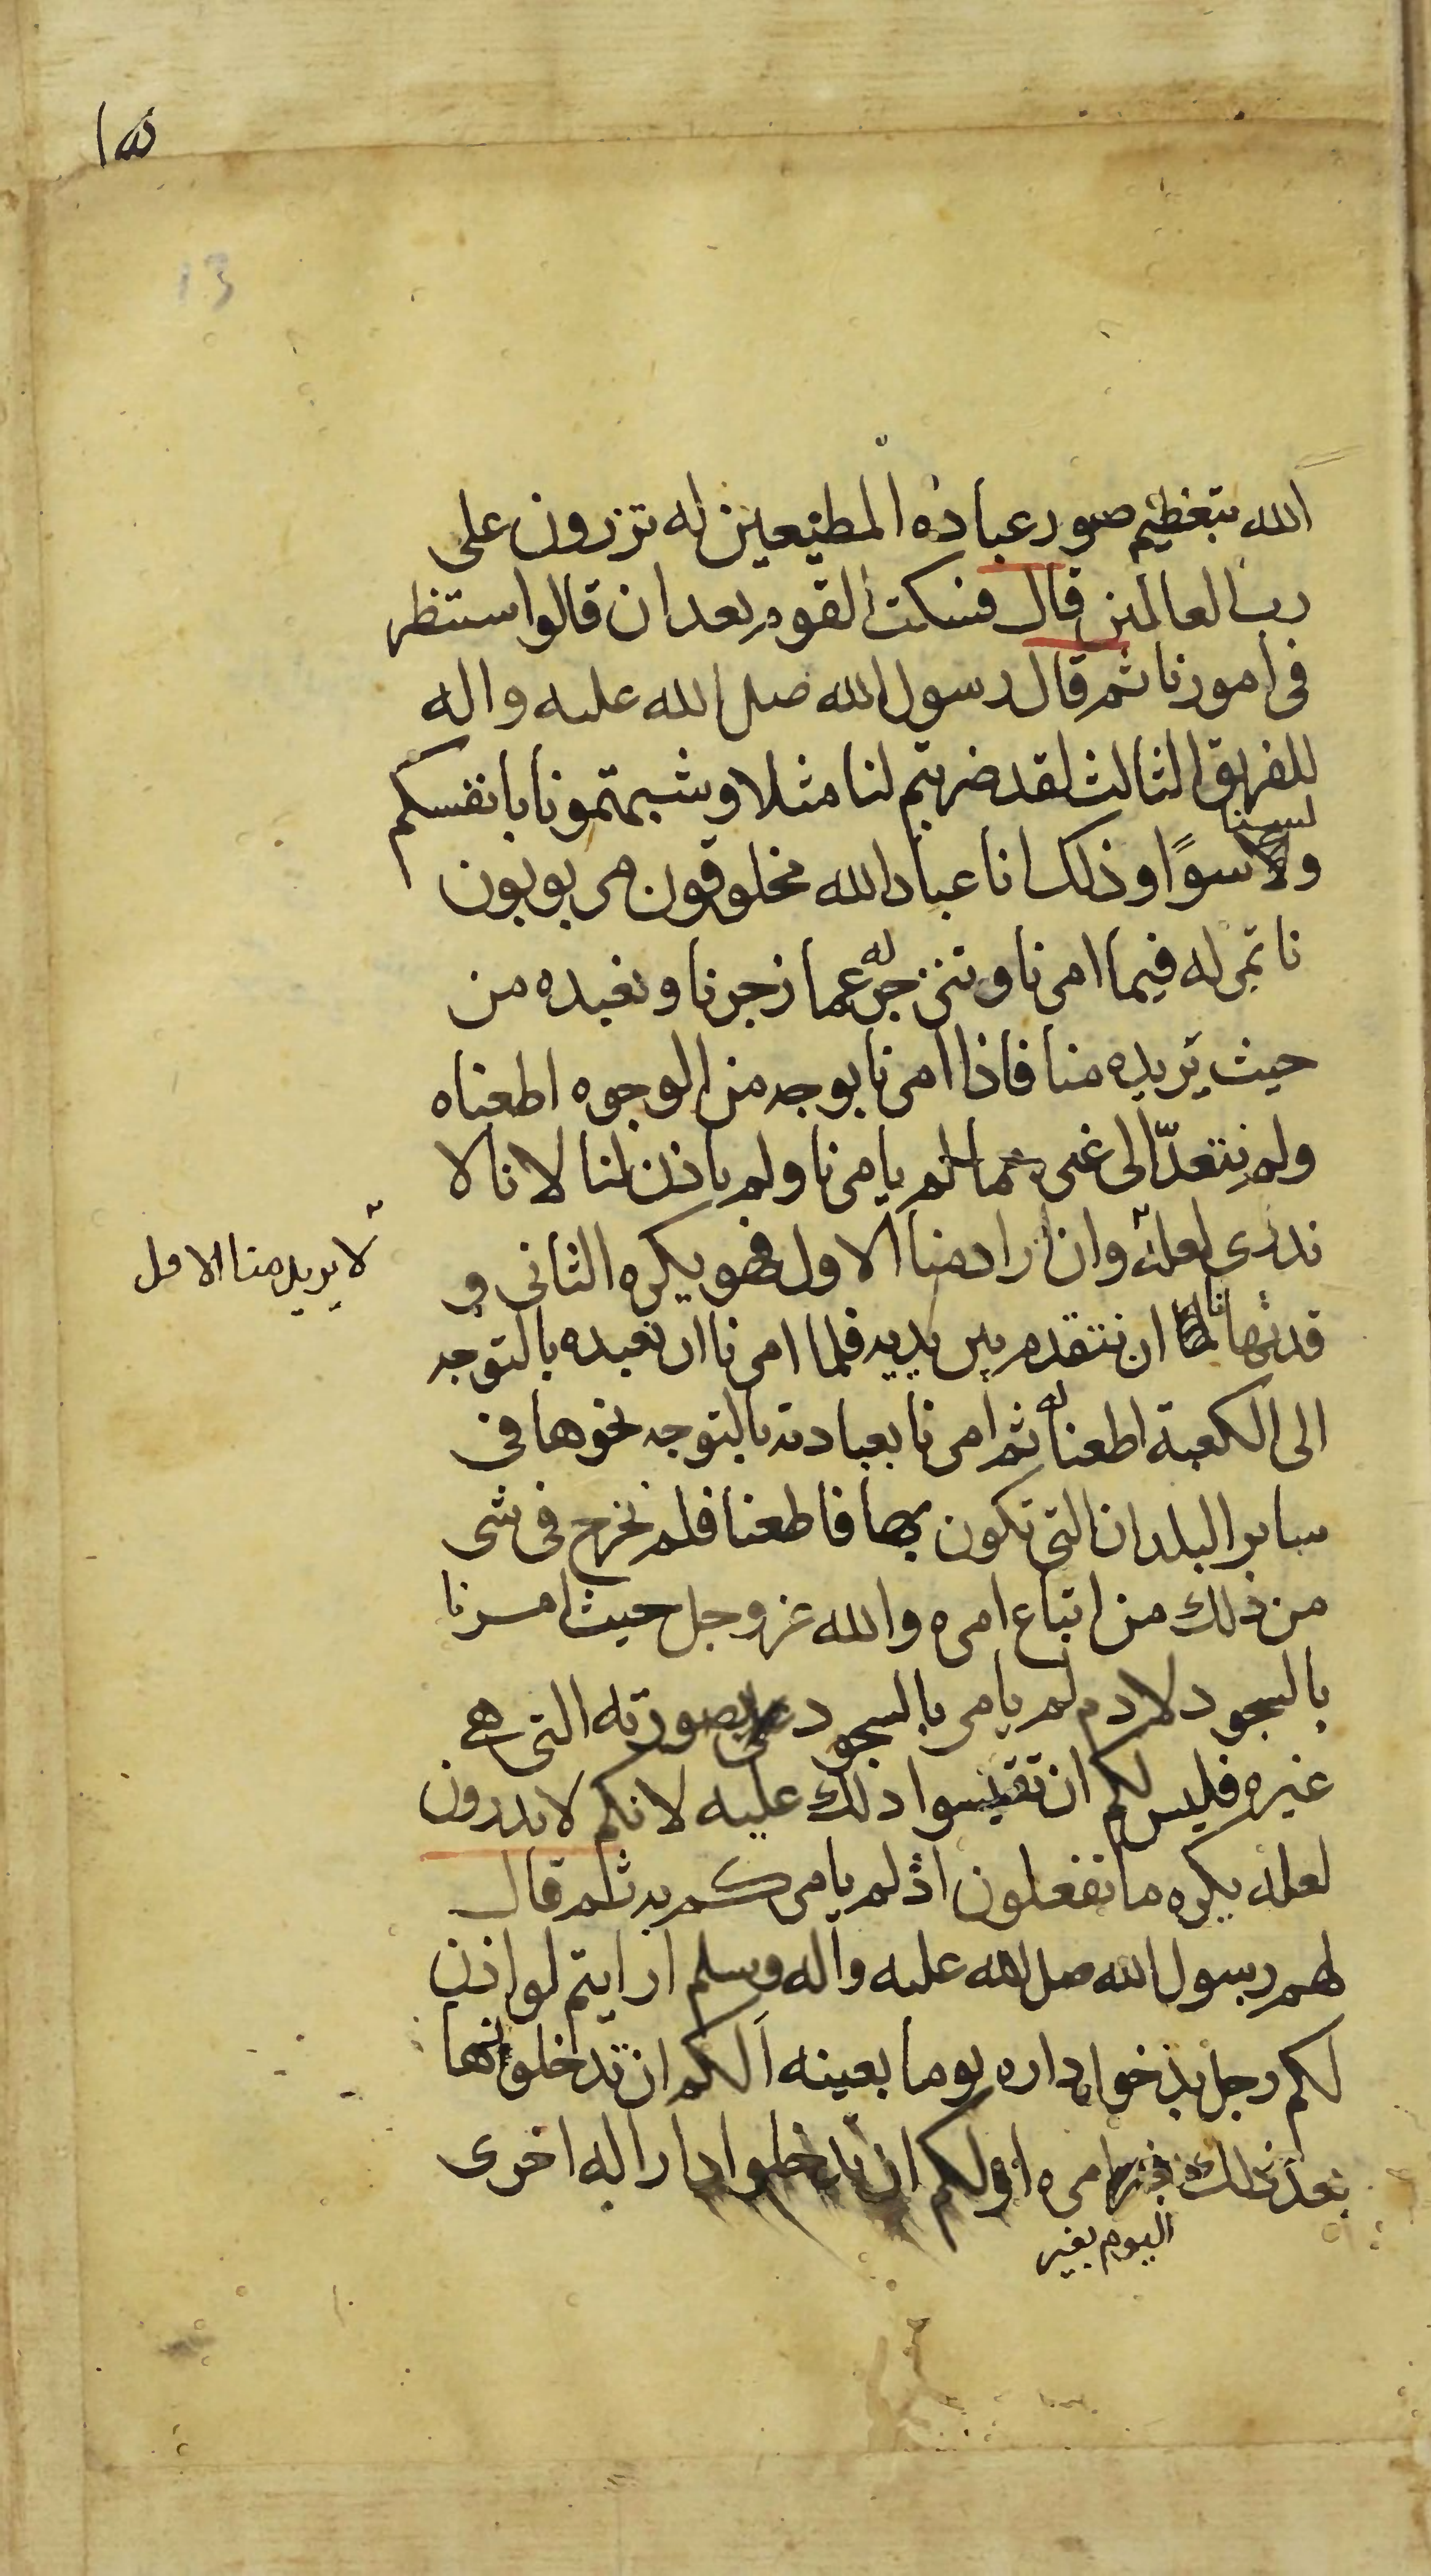 ١٥
13
الله بتعظيم صور عباده المطيعين له تزرون على
رب العالمين قال فسكت القوم بعد ان قالوا سننظر
فى امورنا ثم قال رسول الله صلى الله عليه واله
للفريق الثالث لقد ضربتم لنا مثلا وشبهتمونا بانفسكم
ولسنا سوًا وذلك انا عباد الله مخلوقون مربوبون
ناتمر له فيما امرنا وننزجر له عما زجرنا ونعبده من
حيث يريده منا فاذا امرنا بوجه من الوجوه اطعناه
ولم نتعدّ الى غيره مما لم يامرنا ولم ياذن لنا لانا لا
ندرى لعله وان اراد منا الاول فهو يكره الثانى و
لا يريد منا الاول
قد نهانا ان نتقدم بين يديه فلما امرنا ان نعبده بالتوجه
الى الكعبة اطعنا له ثم امرنا بعبادته بالتوجه نحوها فى
ساير البلدان التى تكون بها فاطعنا فلم نخرج فى شى
من ذلك من اتباع امره والله عز وجل حيث امرنا
بالسجود لادم لم يامر بالسجود بصورته التى هى
غيره فليس لكم ان تقيسوا ذلك عليه لانكم لا تدرون
لعله يكره ما تفعلون اذ لم يامركم به ثم قال
لهم رسول الله صلى الله عليه وآله وسلم ارايتم لو اذن
لكم رجل بدخول داره يوما بعينه ألكم ان تدخلونها
بعد ذلك اليوم بغير امره او لكم ان تدخلوا دارا له اخرى